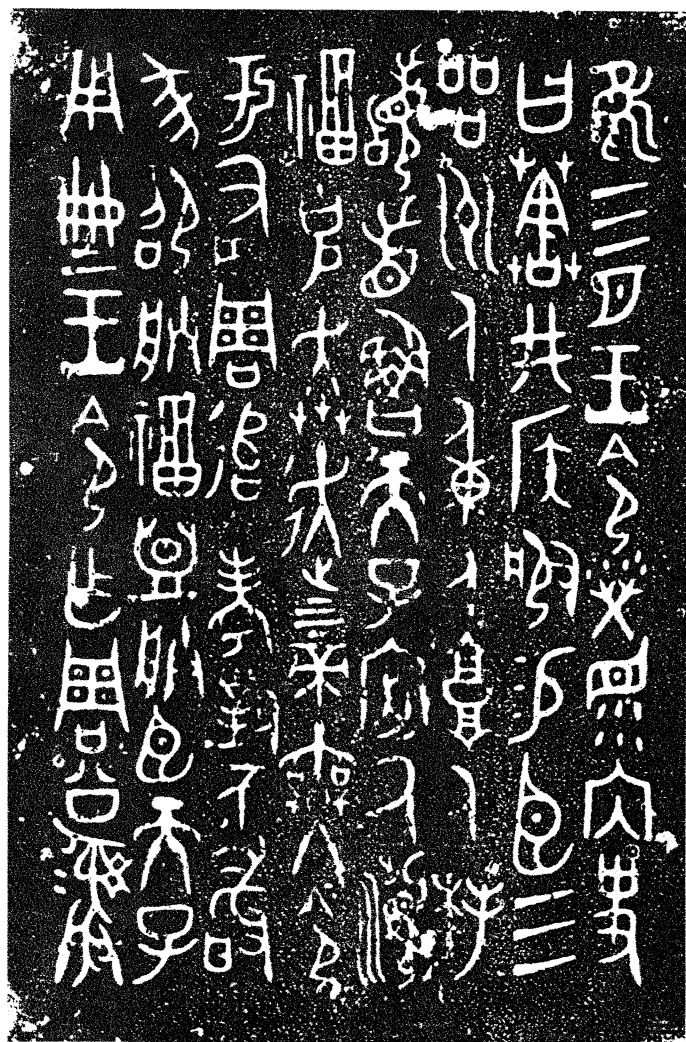 隹三月王令榮眔內史
曰井侯服易臣三
品州人重人墉人拜
稽首魯天子厥瀕
福克奔走上下帝無冬令
于右周追考對不敢
邵朕福盟朕臣天子
用典王令乍周公彝